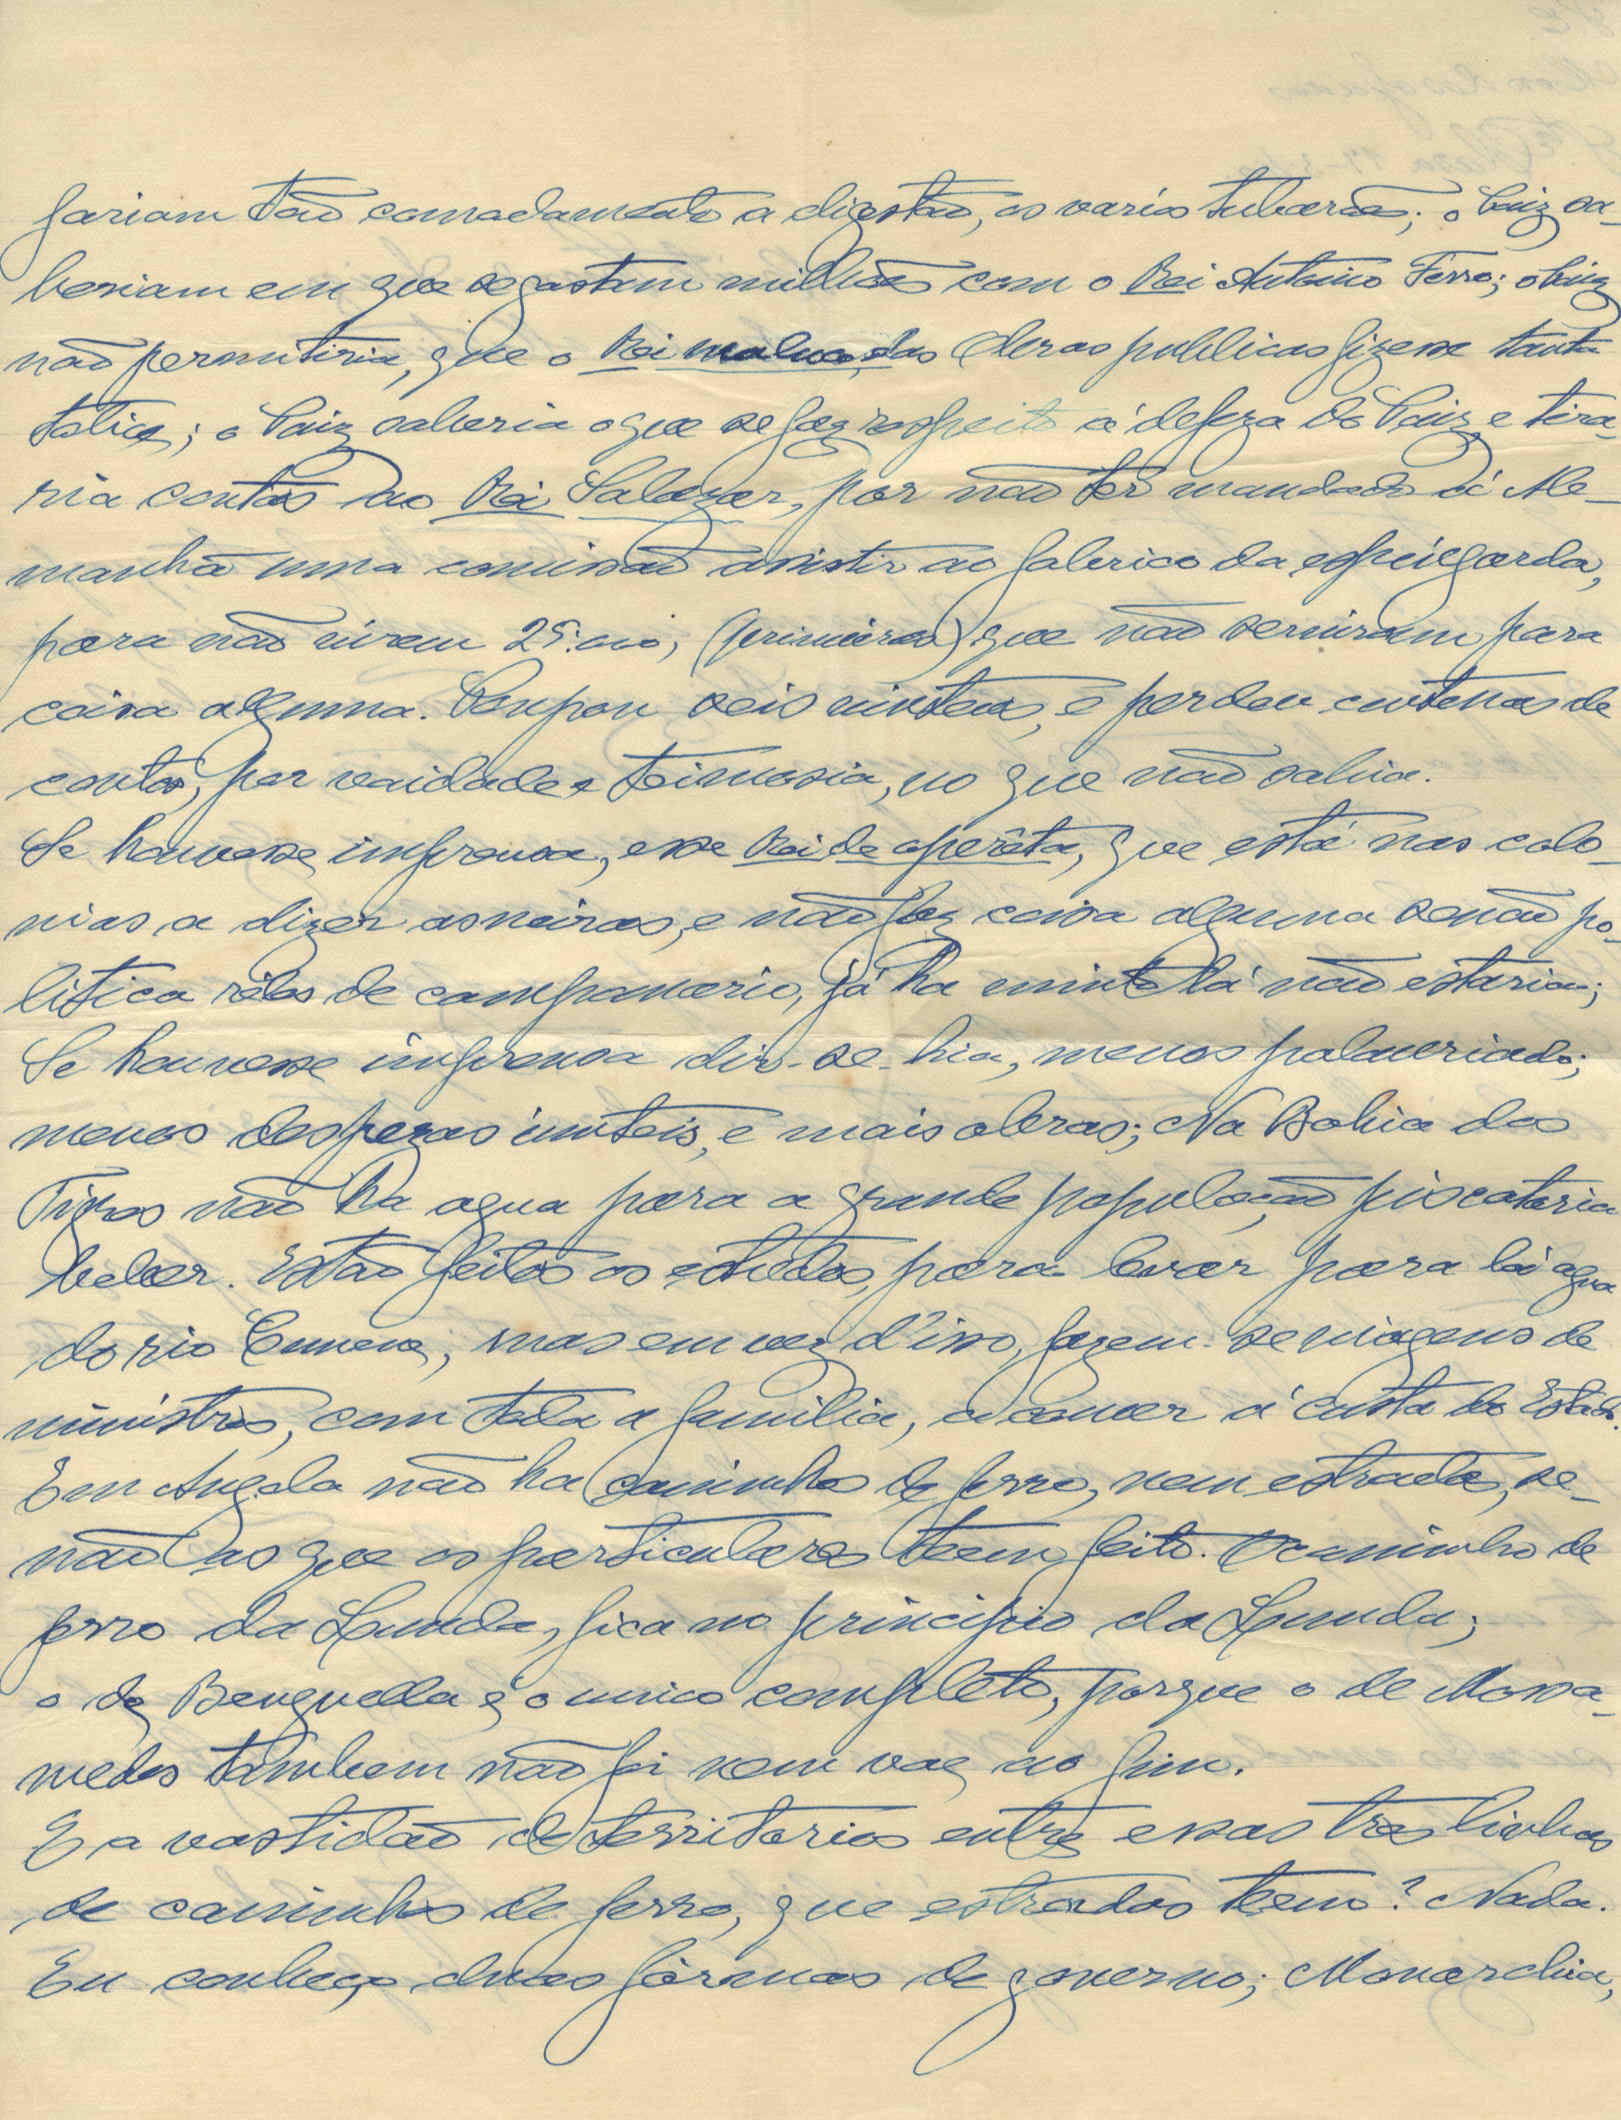 fariam tão comodamente a digestão, os varios tubarões; o Paiz sa-
beriam em que se gastam milhões com o Rei Antonio Ferro; o Paiz
não permitiria, que o Rei maluco, das Obras publicas fizesse tanta
tolice; o Paiz saberia o que se faz respeito á defeza do Paiz, e tira-
ria contas ao Rei Salazar, por não ter mandado á Ale-
manhã uma comissão assistir ao fabrico da espingarda,
para não virem 25: mil, (primeiras) que não serviram para
coisa alguma. Poupou seis vintens, e perdeu centenas de
contos, por vaidade e teimosia, no que não sabia.
Se houvesse imprensa, esse Rei de operêta, que está nas colo-
nias a dizer asneiras, e não faz coisa alguma senão po-
litica réles de campanario, já ha muito lá não estaria;
Se houvesse imprensa dir-se-hia, menos palavriado;
menos despezas inuteis, e mais obras; Na Bahia dos
Tigres não ha agua para a grande população piscatoria
beber. Estão feitos os estudos, para levar para lá agua
do rio Cunene, mas em vez d'isso, fazem-se viagens de
ministros, com toda a familia, a comer á custa do Estado.
Em Angola não ha caminhos de ferro, nem estradas, se-
não as que os particulares teem feito. O caminho de
ferro da Lunda, fica no principio da Lunda;
o de Benguella é o unico completo, porque o de Mossa-
medes tambem não foi nem vae ao fim.
E a vastidão de territorios entre essas tres linhas
de caminhos de ferro, que estradas teem? Nada.
Eu conheço duas fórmas de governo; Monarchia,